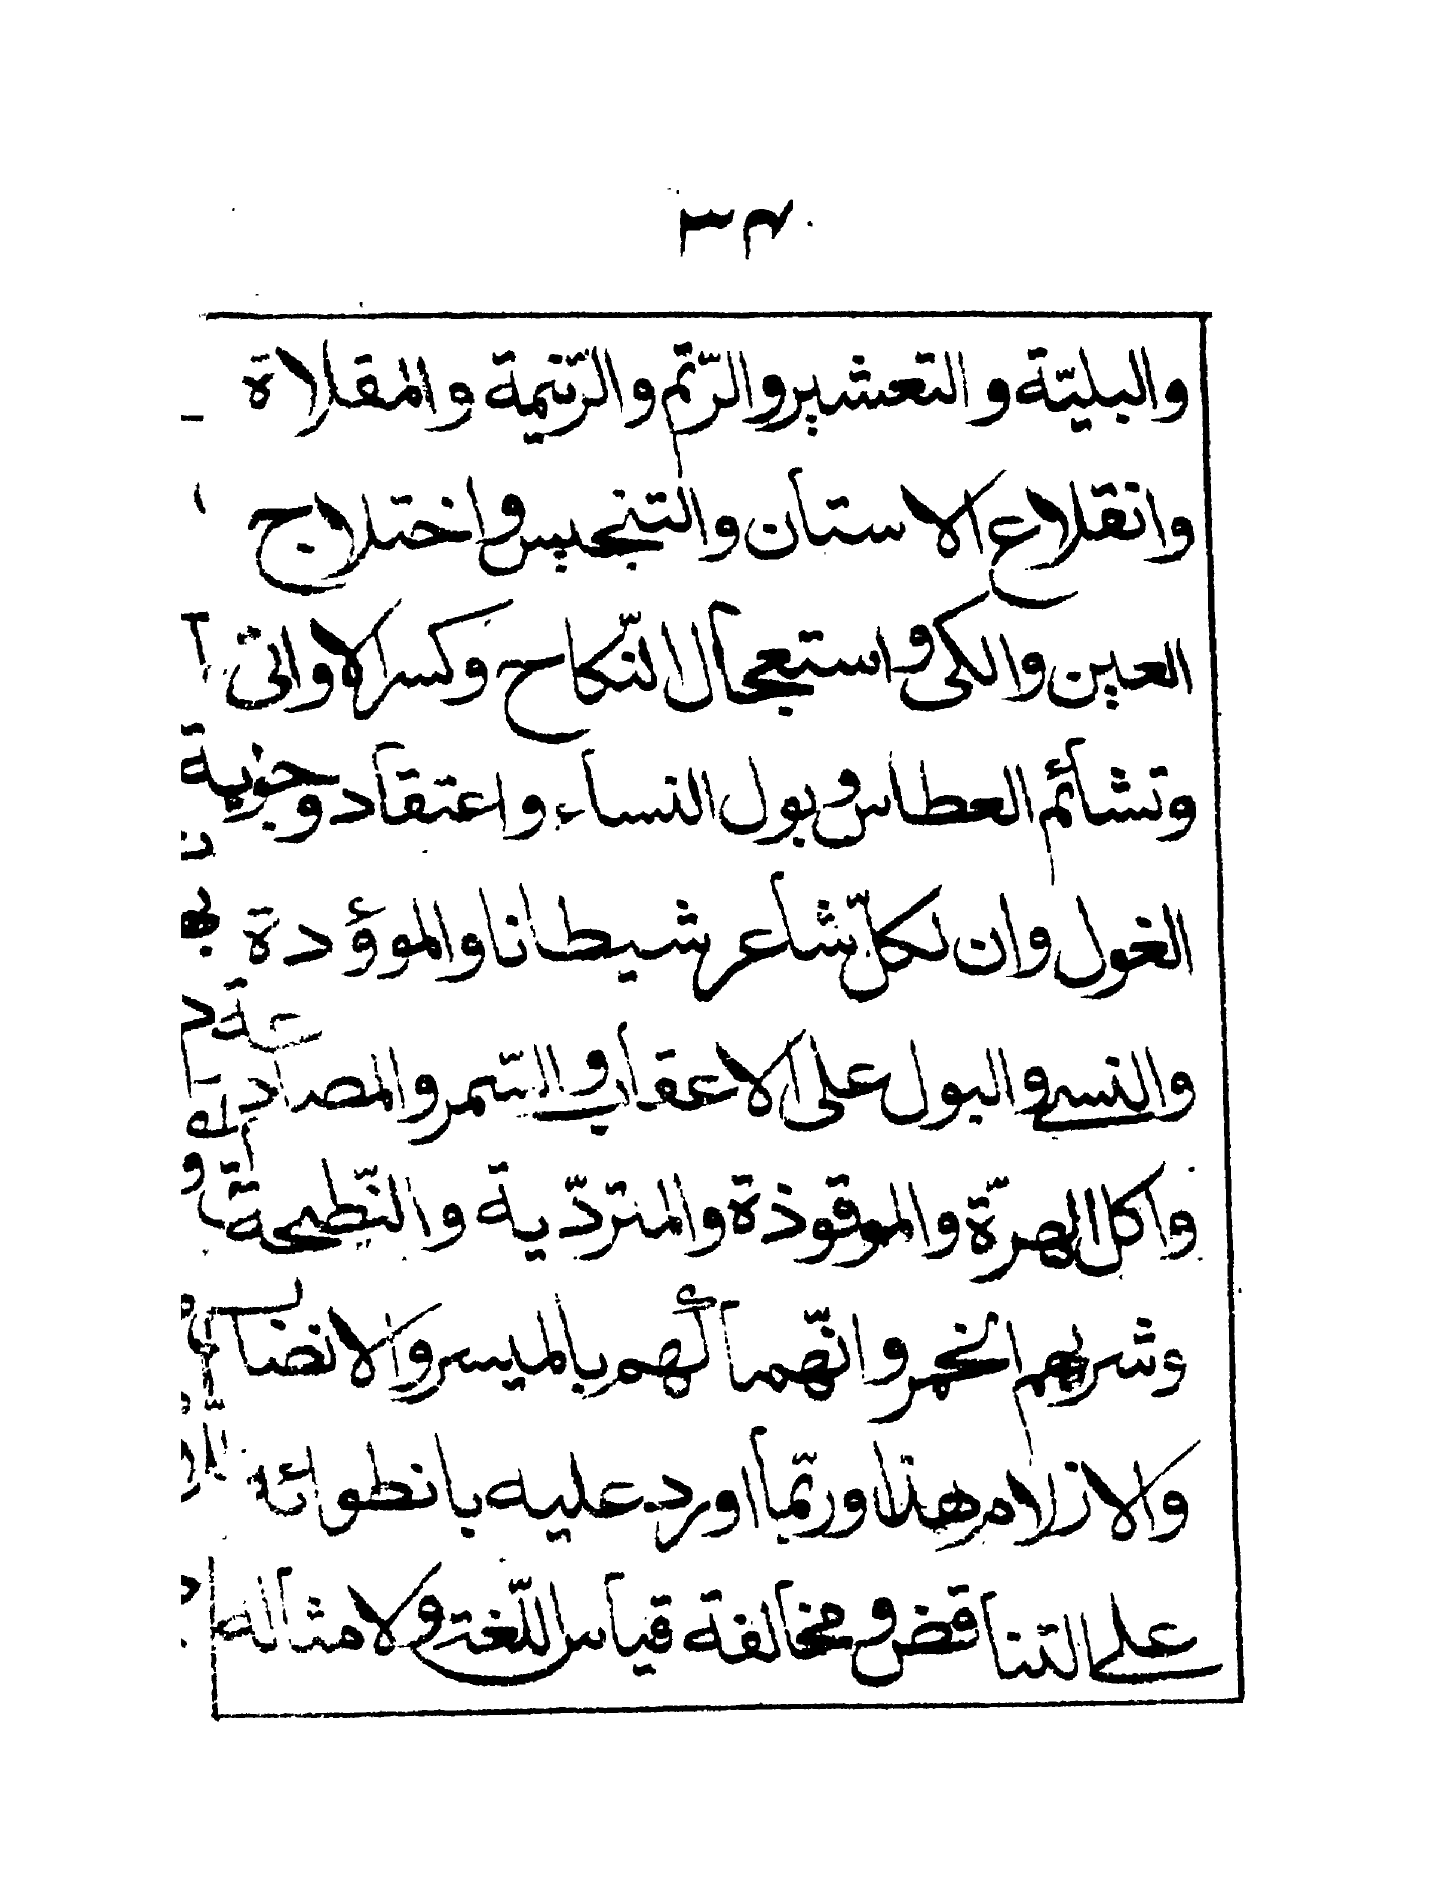 ٣٤
والبليّة والتعشير والرّتم والرّتيمة والمقلاة
وانقلاع الاستان والتنجيس واختلاج
العين والكى واستعجال النّكاح وكسر الاوانى
وتشائم العطاس وبول النساء واعتقاد وجزية
الغول وان لكلّ شاعر شيطانا والموؤدة
والنسى والبول على الاعقاب والتمر والمصادعة
واكل الهرّة والموقوذة والمتردّية والنّطيحة
وشربهم الخمر وانّهماكهم بالميسر والانصاب
والازلام هذا وربّما اورد عليه بانطوائه
على التناقض ومخالفة قياس اللّغة ولامثاله